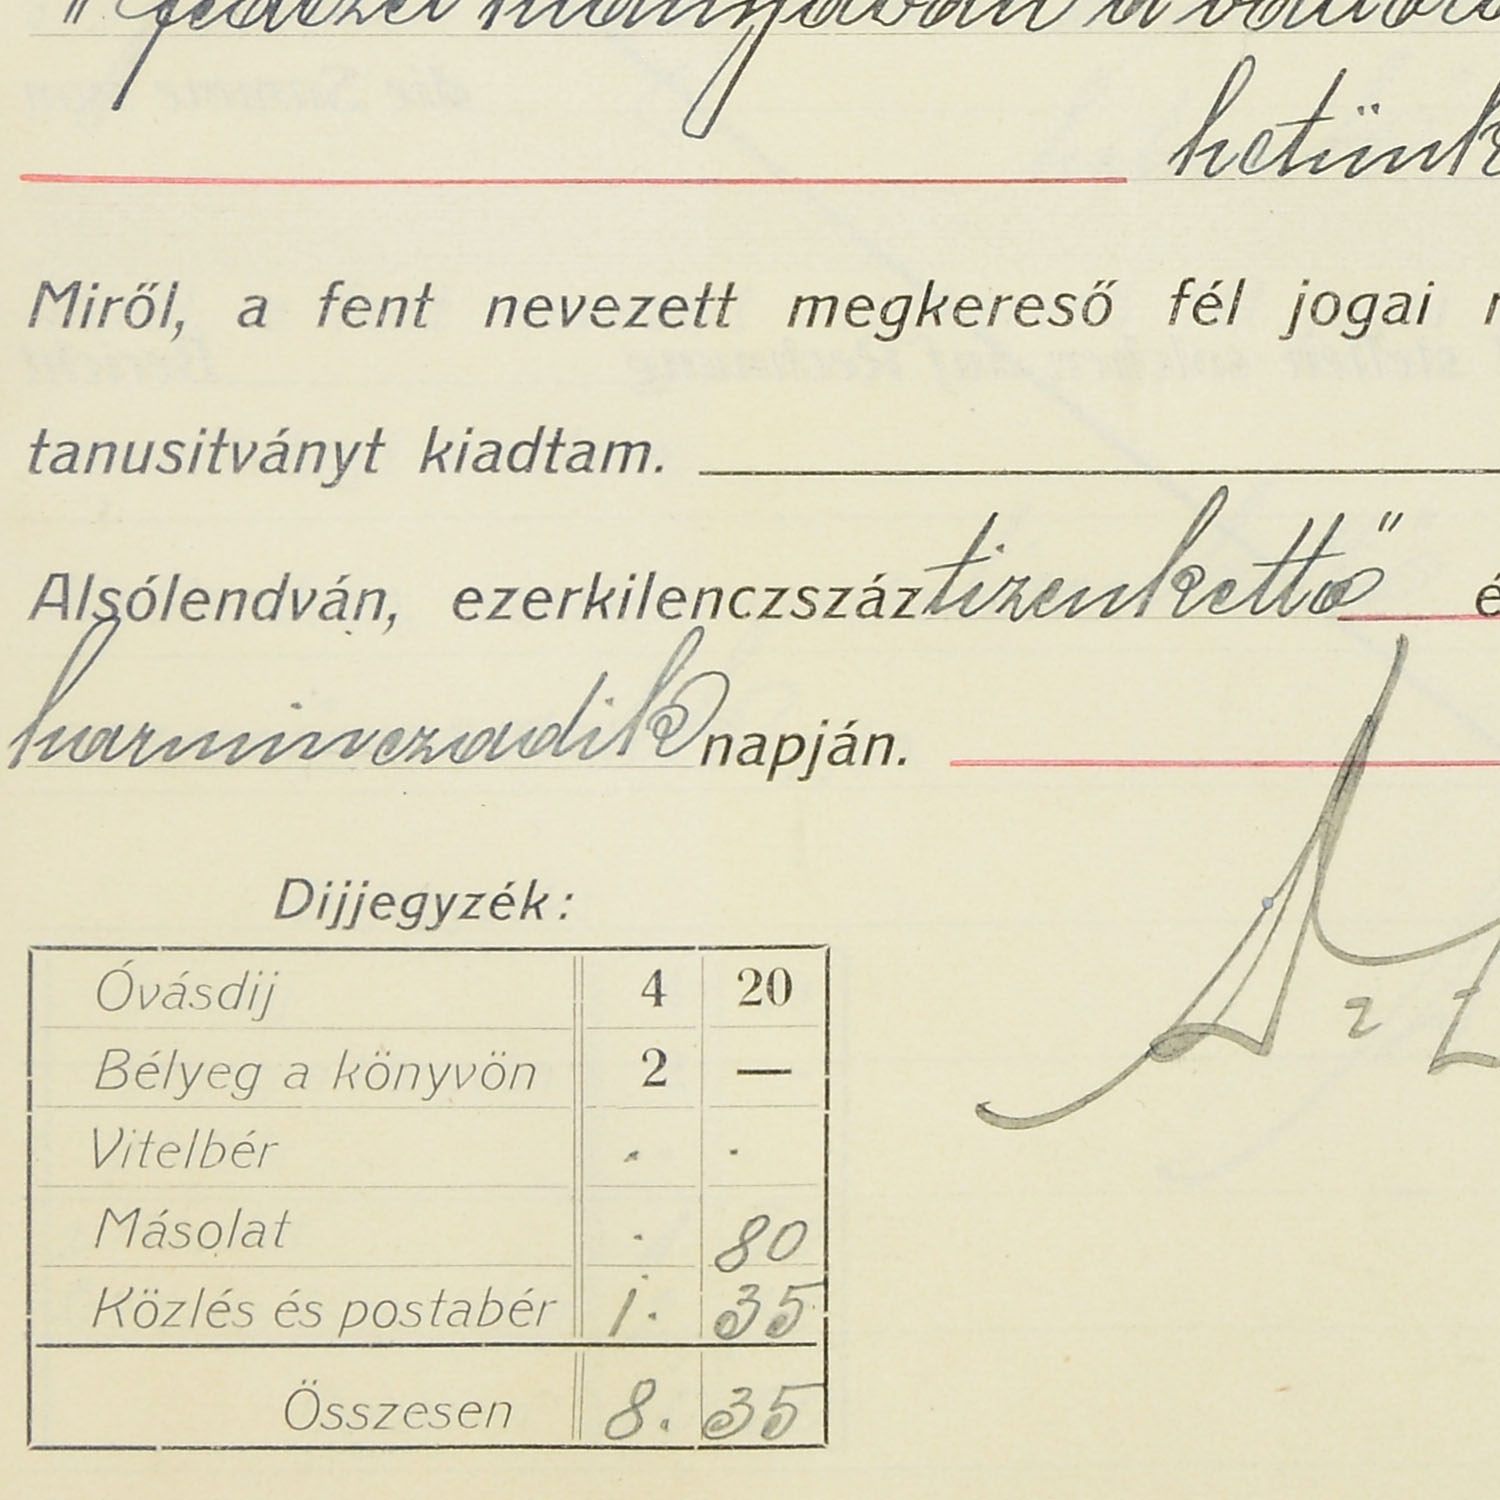 hiányában a
hetünk
Miről, a fent nevezett megkereső fél jogai
tanusitványt kiadtam.
Alsólendván, ezerkilenczszáz tizenkettő
harminczadik napján.
Dijjegyzék:
Óvásdij 4 20
Bélyeg a könyvön 2 —
Vitelbér . .
Másolat . 80
Közlés és postabér 1. 35
Összesen 8. 35